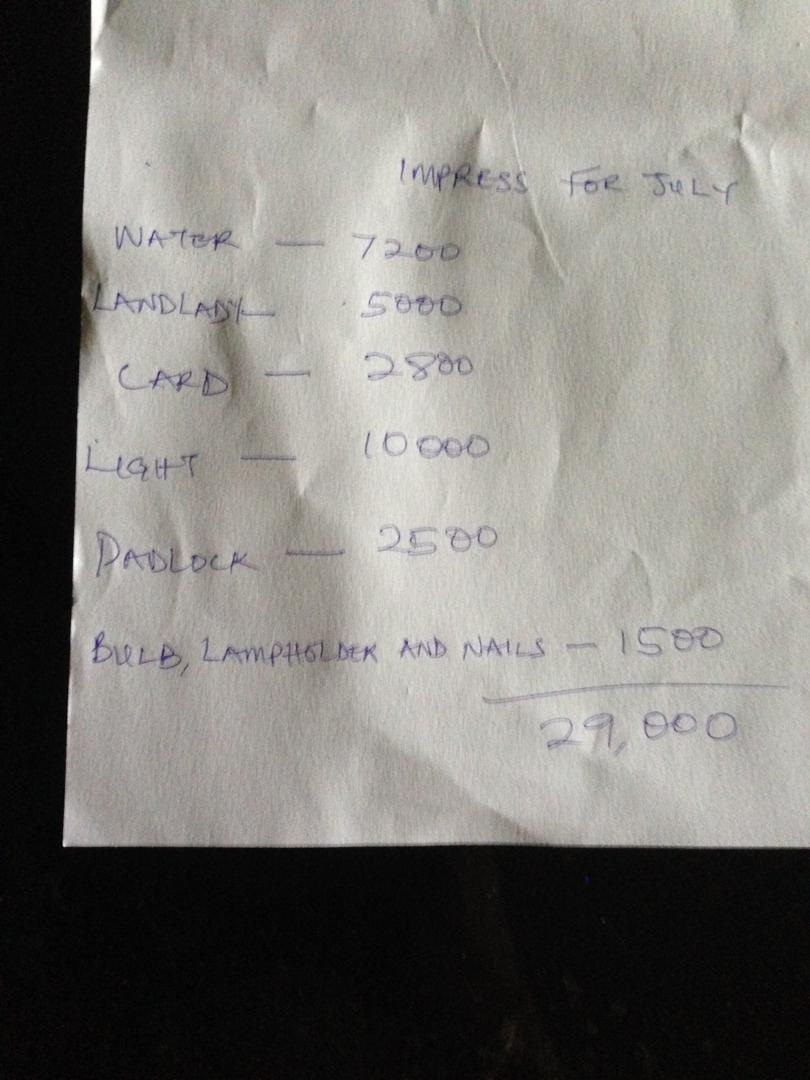 IMPRESS FOR JULY
WATER — 7200
LANDLADY — 5000
CARD — 2800
LIGHT — 10000
PADLOCK — 2500
BULB, LAMPHOLDER AND NAILS — 1500
29,000